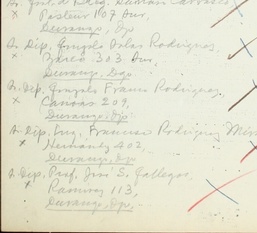 Pasteur 107 Sur,
Durango, Dgo
Sr. Dip. Gonzalo Salas Rodriguez,
x 303 Sur,
Durango, Dgo.
Sr. Dip. Gonzalo Franco Rodriguez,
x Canoas 209,
Durango, Dgo.
Sr. Dip. Ing. Rodriguez
x Hernandez 402,
Durango, Dgo
Sr. Dip. Prof. José S. Gallegos,
x Ramirez 113,
Durango, Dgo.